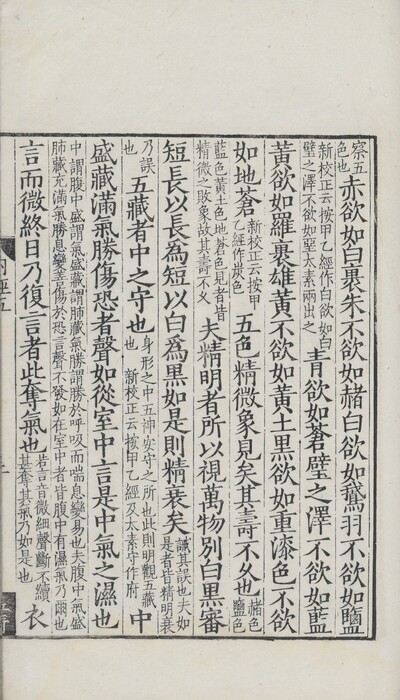 察五色也赤欲如白裹朱不欲如赭白欲如鵞羽不欲如鹽
新校正云按甲乙經作白欲如白璧之澤不欲如堊太素兩出之青欲如蒼璧之澤不欲如藍
黃欲如羅裹雄黃不欲如黃土黑欲如重漆色不欲
如地蒼新校正云按甲乙經作炭色五色精微象見矣其壽不久也赭色鹽色
藍色黃土色地蒼色見者皆精微之敗象故其壽不久夫精明者所以視萬物別白黑審
短長以長為短以白為黑如是則精衰矣誡其誤也夫如是者皆精明衰
乃誤也五藏者中之守也身形之中五神安守之所也此則明觀五藏也新校正云按甲乙經及太素守作府中
盛藏滿氣勝傷恐者聲如從室中言是中氣之濕也
中謂腹中盛謂氣盛藏謂肺藏氣勝謂勝於呼吸而喘息變易也夫腹中氣盛肺藏充滿氣勝息變善傷於恐言聲不發如在室中者皆腹中有濕氣乃爾也
言而微終日乃復言者此奪氣也若言音微細聲斷不續甚奪其氣乃如是也衣